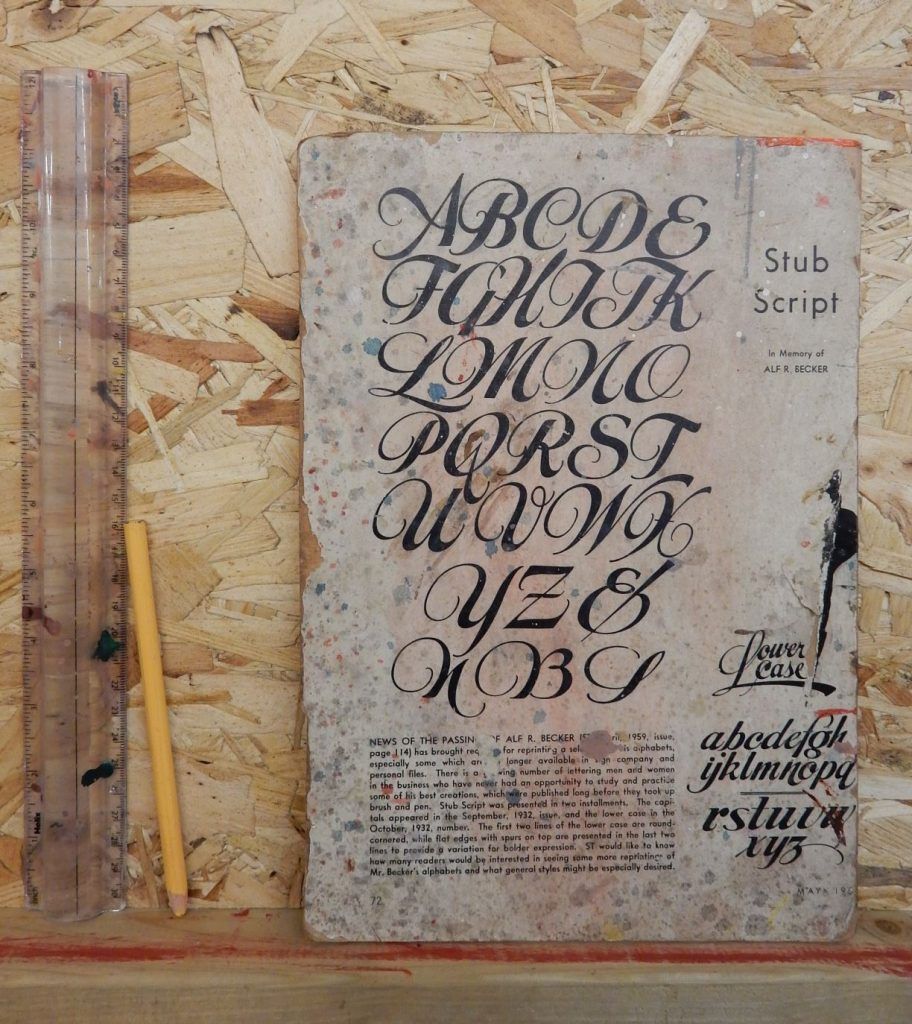 A B C D E
F G H I J K
L M N O
P Q R S T
U V W X
Y Z &
N B S
Stub
Script
In Memory of
ALF R. BECKER
NEWS OF THE PASSIN OF ALF R. BECKER ril, 1959, issue,
page 114) has brought for reprinting a alphabets,
especially some which longer available in company and
personal files. There is a number of lettering men and women
in the business who have never had an opportunity to study and practice
some of his best creations, which were published long before they took up
brush and pen. Stub Script was presented in two installments. The capi-
tals appeared in the September, 1932, issue, and the lower case in the
October, 1932, number. The first two lines of the lower case are round-
cornered, while flat edges with spurs on top are presented in the last two
lines to provide a variation for bolder expression. ST would like to know
how many readers would be interested in seeing some more reprintings of
Mr. Becker's alphabets and what general styles might be especially desired.
72
Lower
Case
abcdefgh
ijklmnopq
rstuvw
xyz
MAY
Helix